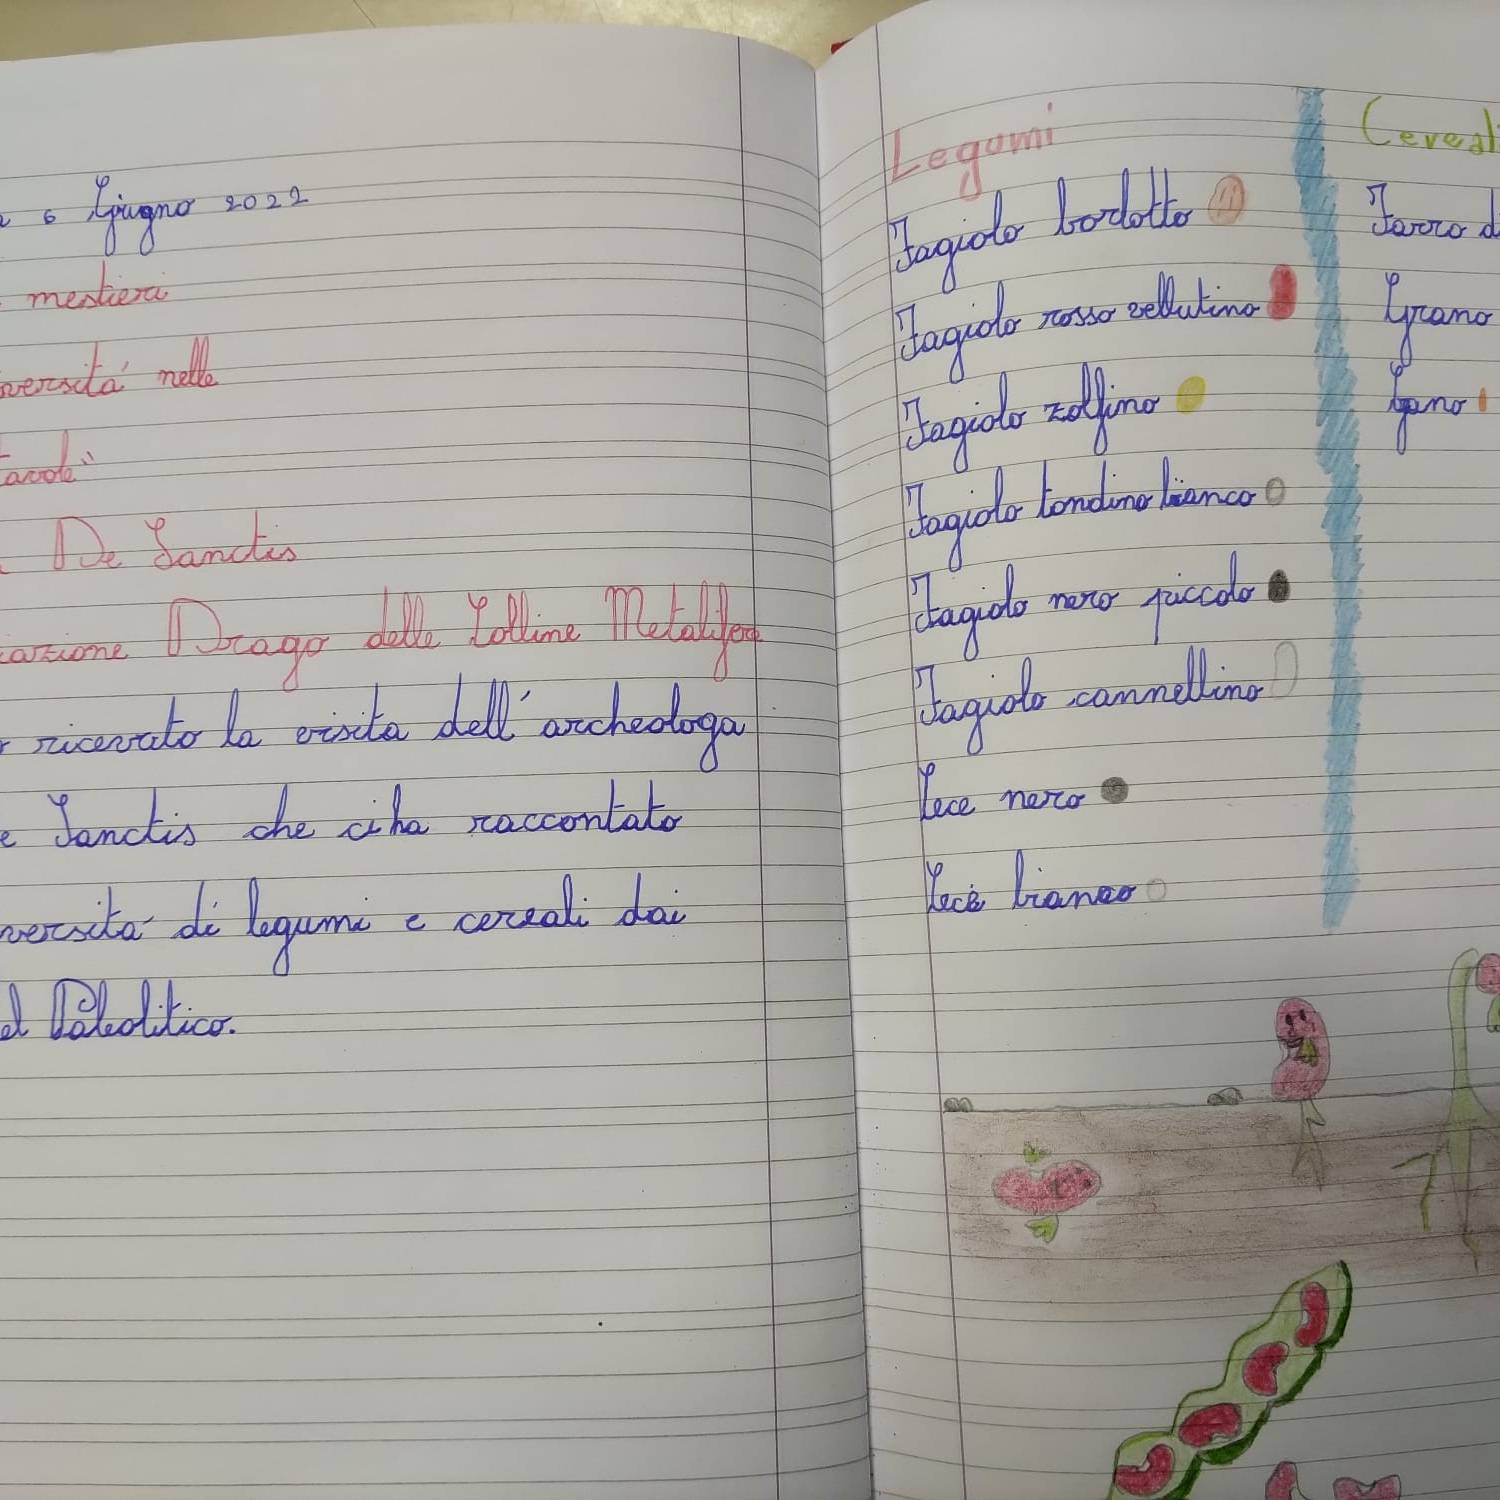 6 Giugno 2022
mestieri
versità nelle
tavole"
De Sanctis
cazione Drago delle Colline Metalifere
ricevuto la visita dell'archeologa
e Sanctis che ci ha raccontato
versità di legumi e cereali dai
el Paleolitico.
Legumi
Fagiolo borlotto
Fagiolo rosso vellutino
Fagiolo zolfino
Fagiolo tondino bianco
Fagiolo nero piccolo
Fagiolo cannellino
Cece nero
Cece bianco
Cereali
Farro d
Grano
Grano